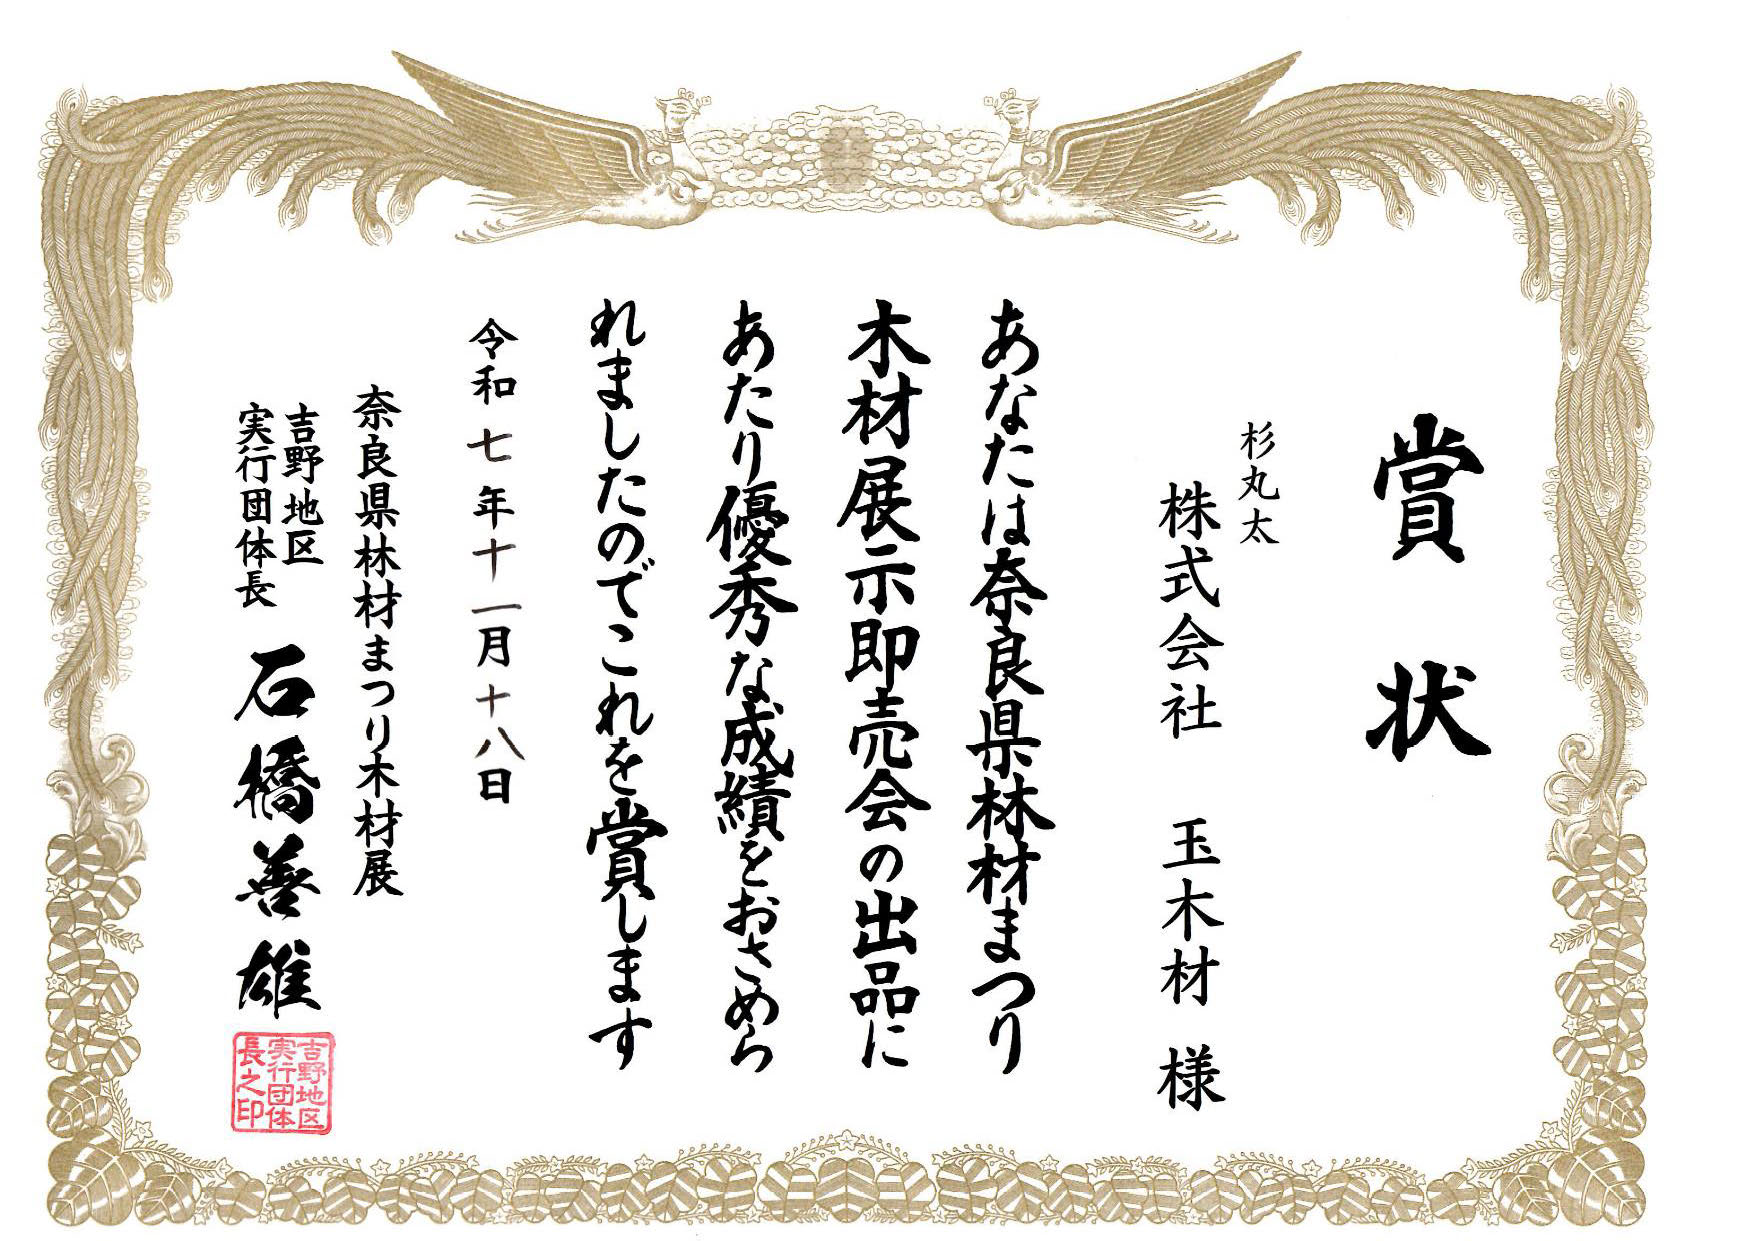 賞状
杉丸太
株式会社 玉木材 様
あなたは奈良県林材まつり
木材展示即売会の出品に
あたり優秀な成績をおさめら
れましたのでこれを賞します
令和七年十一月十八日
奈良県林材まつり木材展
吉野地区
実行団体長
石橋善雄
吉野地区
実行団体
長之印